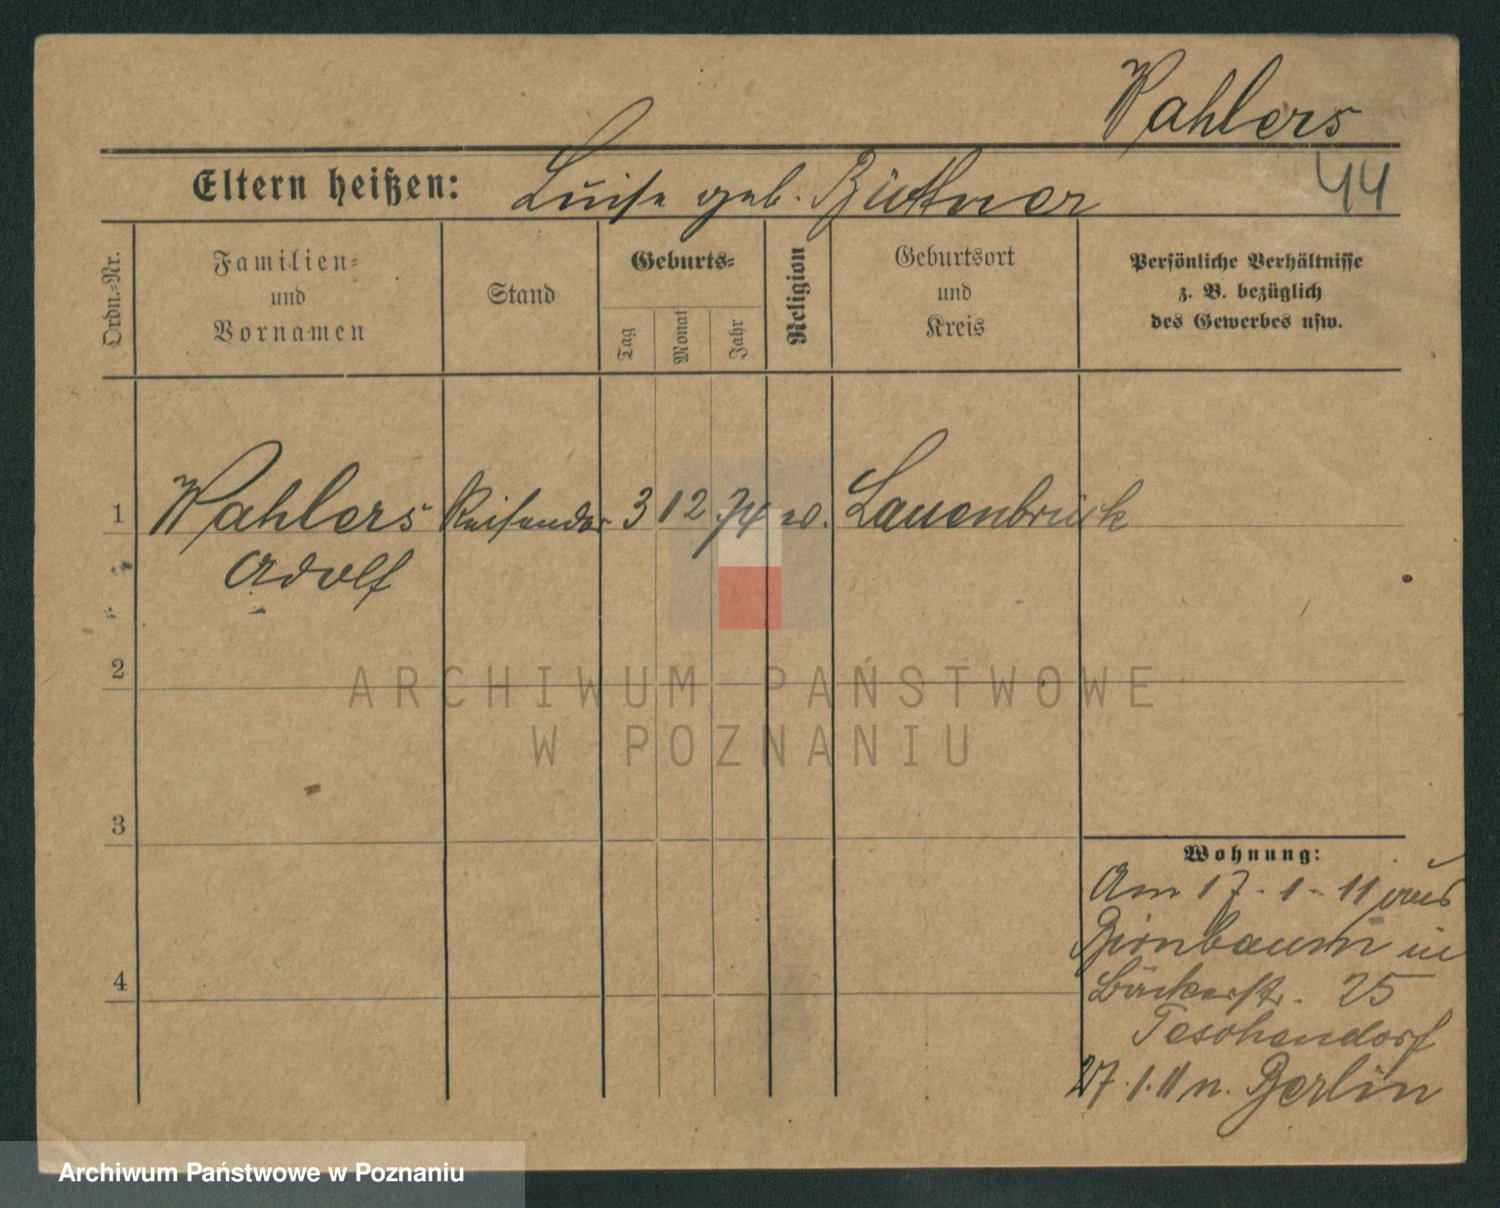 Wahlers
44
Eltern heißen: Luise geb. Büttner
Ordn.-Nr.
Familien-
und
Vornamen
Stand
Geburts-
Tag
Monat
Jahr
Religion
Geburtsort
und
Kreis
Persönliche Verhältnisse
z. B. bezüglich
des Gewerbes usw.
1 Wahlers Reisender 3 12 74 ev. Lauenbrück
Adolf
2
3
4
Wohnung:
Am 17-1-11 aus
Birnbaum in
Bäckerstr. 25
Teschendorf
27.1.11 n. Berlin
ARCHIWUM PAŃSTWOWE
W POZNANIU
Archiwum Państwowe w Poznaniu